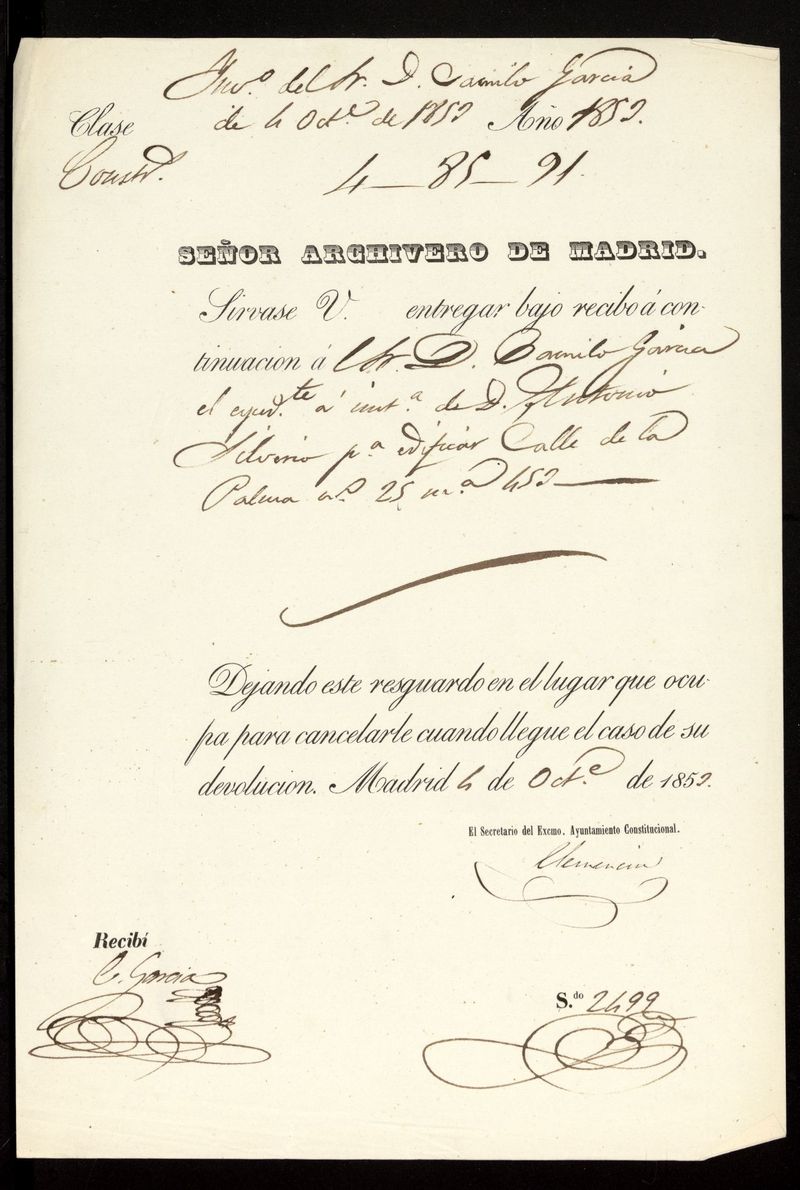 Inv.º del Sr. D. Camilo Garcia
de 4 Oct.e de 1852 Año 1852.
Clase
Constr.
4—85—91.
SEÑOR ARCHIVERO DE MADRID.
Sirvase V. entregar bajo recibo á con-
tinuacion á Sr. D. Camilo Garcia
el espd.te á inst.a de D. Antonio
Silverio p.a edificar Calle de la
Palma n.º 25 m.a 452
Dejando este resguardo en el lugar que ocu-
pa para cancelarle cuando llegue el caso de su
devolucion. Madrid 4 de Oct.e de 1852.
El Secretario del Excmo. Ayuntamiento Constitucional.
Clemencin
Recibí
C. Garcia
S.do 2499